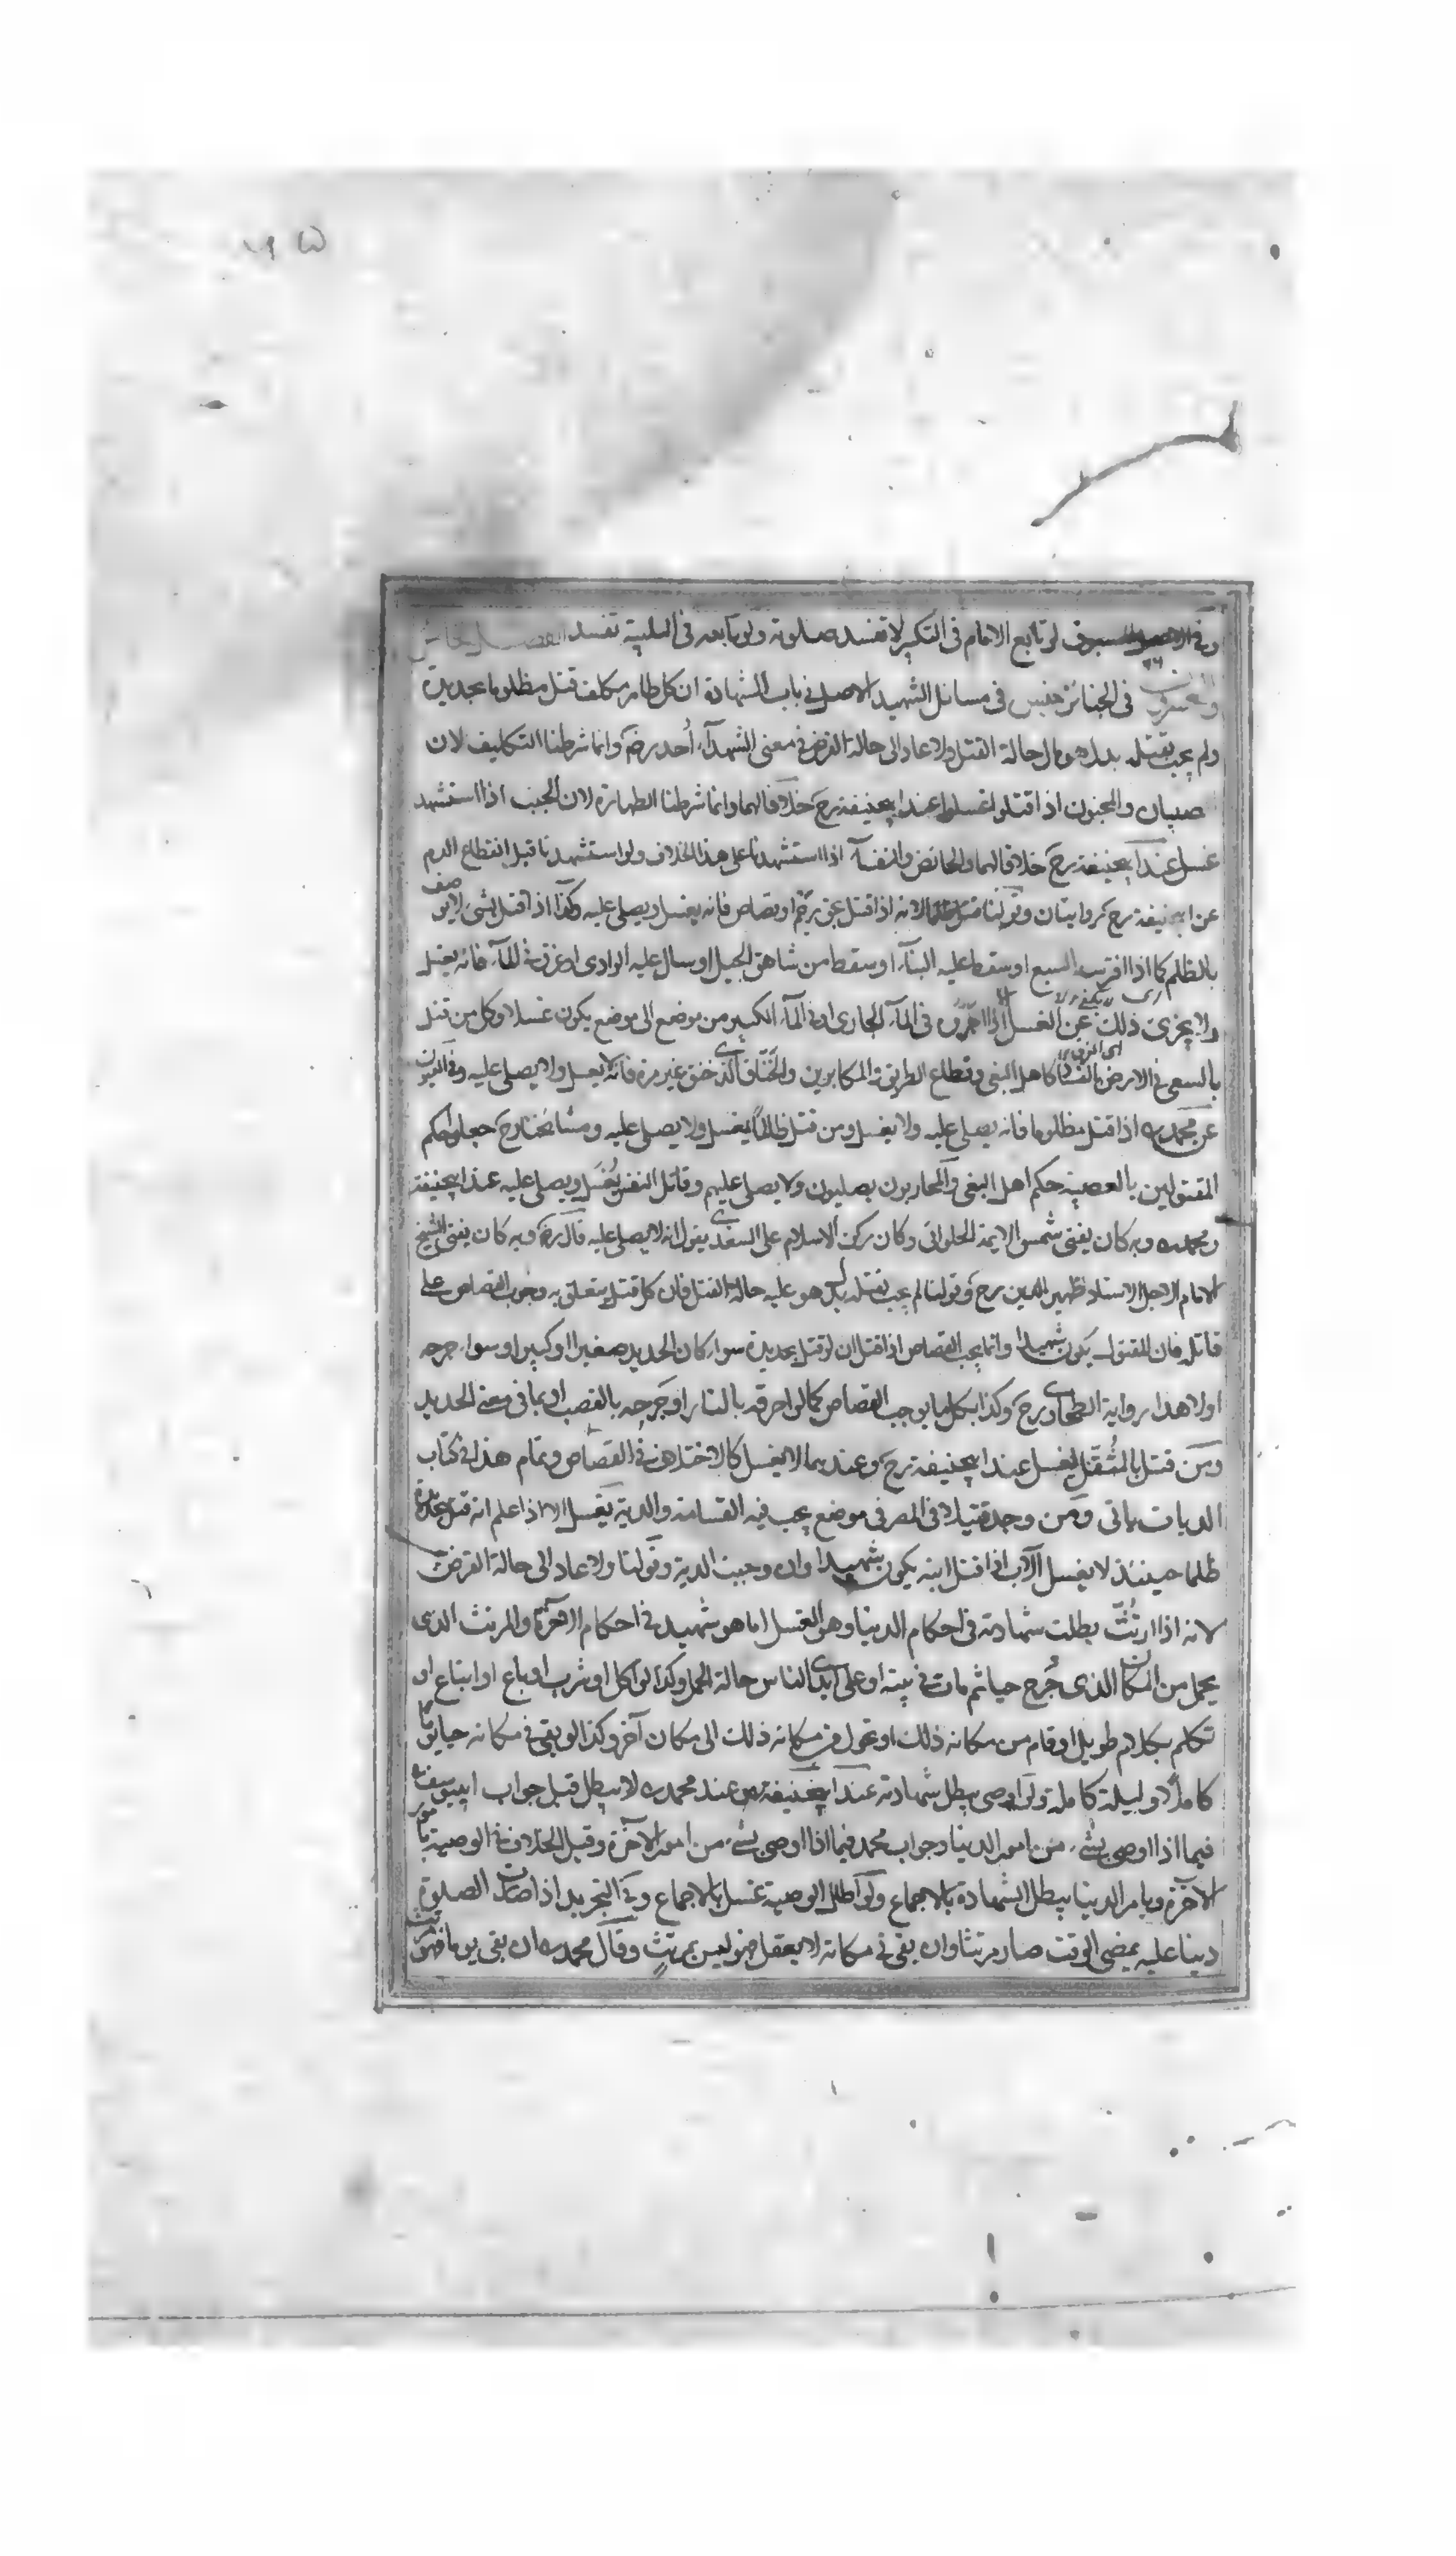 وفي الاصل المسبوق لو تابع الامام في التكبير لا تفسد صلوته ولو تابعه في التلبية تفسد الفصل الخامس
والعشرون في الجنائز جنس في مسائل الشهيد الاصل في باب الشهادة ان كل طاهر مكلف قتل مظلوما بحديدة
ولم يجب بقتله بدل هو مال حالة القتل ولا عاد الى حالة التمرض في معنى الشهدآء أُحد رضـ وانما شرطنا التكليف لان
صبيان والمجنون اذا قتلوا غسلوا عند ابيحنيفة رح خلافا لهما وانما شرطنا الطهارة لان الجنب اذا استشهد
غسل عند ابيحنيفة رح خلافا لهما والحائض والنفسآء اذا استشهدتا على هذا الخلاف ولو استشهدتا قبل انقطاع الدم
عن ابيحنيفة رح روايتان وقولنا قتل ظلما لانه اذا قتل بحق رجم او قصاص فانه يغسل ويصلى عليه وكذا اذا قتل بشئ لا يوصف
بالظلم كما اذا افترسه السبع او سقط عليه البنآء او سقط من شاهق الجبل او سال عليه الوادى او غرق في المآء فانه يغسل
ولا يجزئ ذلك عن الغسل اى لا يكفى اذا حرّك في المآء الجارى او في المآء الكبير من موضع الى موضع يكون غسلا وكل من قتل
بالسعى في الارض بالفساد كاهل البغى وقطاع الطريق والمكابرين والخنّاق الذى خنق غير مرة فانه لا يغسل ولا يصلى عليه وفي العيون
عن محمد ره اذا قتل مظلوما فانه يصلى عليه ولا يغسل ومن قتل ظالما يغسل ولا يصلى عليه ومشايخنا رح جعلوا حكم
المقتولين بالعصبية حكم اهل البغى والمحاربون يصلبون ولا يصلى عليهم وقاتل النفس يُغسل ويصلى عليه عند ابيحنيفة
ومحمد ره وبه كان يفتى شمس الايمة الحلوانى وكان ركن الاسلام على السغدى يقول انه لا يصلى عليه قال رضـ وبه كان يفتى الشيخ
الامام الاجل الاستاد ظهير الدين رح وقولنا لم يجب بقتله بدل هو عليه حالة القتل فان كل قتل يتعلق به وجوب القصاص على
قاتله فان المقتول يكون شهيدا وانما يجب القصاص اذا قتل ان لو قتل بحديدة سوآء كان الحديد صغيرا او كبيرا وسوآء جرحه
اولا هذا رواية الطحاوى رح وكذا بكل ما يوجب القصاص كما لو احرقه بالنار او جرحه بالقصب او بما في معنى الحديد
ومن قتل بالمُثقّل يغسل عند ابيحنيفة رح وعندهما لا يغسل كالاختلاف في القصاص وتمام هذا في كتاب
الديات ياتى ومن وجد قتيلا في المصر في موضع يجب فيه القسامة والدية يغسل الا اذا علم انه قتل بحديدة
ظلما حينئذ لا يغسل الاب اذا قتل ابنه يكون شهيدا وان وجبت الدية وقولنا ولا عاد الى حالة التمرض
لانه اذا ارتُثّ بطلت شهادته في احكام الدنيا وهو الغسل اما هو شهيد في احكام الآخرة والمرتث الذى
يحمل من المكان الذى جُرح حيا ثم مات في بيته او على ايدى الناس حالة الحمل وكذا لو اكل او شرب او باع او ابتاع او
تكلم بكلام طويل او قام من مكانه ذلك او تحول من مكانه ذلك الى مكان آخر وكذا لو بقى في مكانه حيا يوما
كاملا او ليلة كاملة ولو اوصى يبطل شهادته عند ابيحنيفة رح وعند محمد ره لا يبطل قيل جواب ابييوسف
فيما اذا اوصى بشئ من امور الدنيا وجواب محمد فيما اذا اوصى بشئ من امور الآخرة وقيل الخلاف في الوصية بامور
الآخرة وبامر الدنيا يبطل الشهادة بالاجماع ولو اطال الوصية غسل بالاجماع وفي التجريد اذا صارت الصلوة
دينا عليه بمضى الوقت صار مرتثا وان بقى في مكانه لا يعقل فهو ليس بمرتثٍ وقال محمد ره ان بقى يوما فهو مرتث